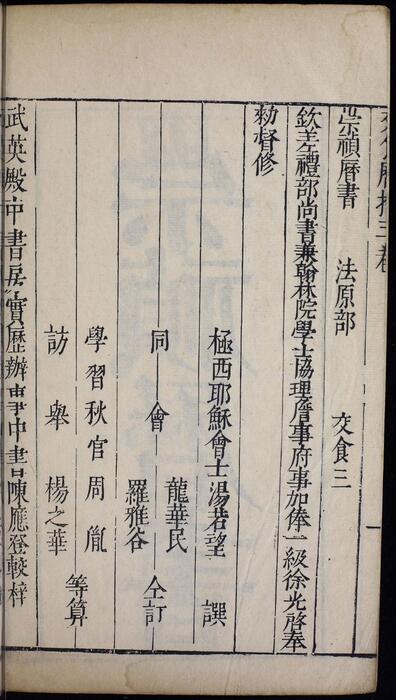 交食曆指三卷
崇禎曆書　法原部　交食三　一
欽差禮部尚書兼翰林院學士協理詹事府事加俸一級徐光啓奉
勑督修
極西耶穌會士湯若望　譔
同　會　龍華民　仝訂
羅雅谷
學習秋官周　胤　等算
訪　舉　楊之華
武英殿中書房實歷辦事中書陳應登較梓